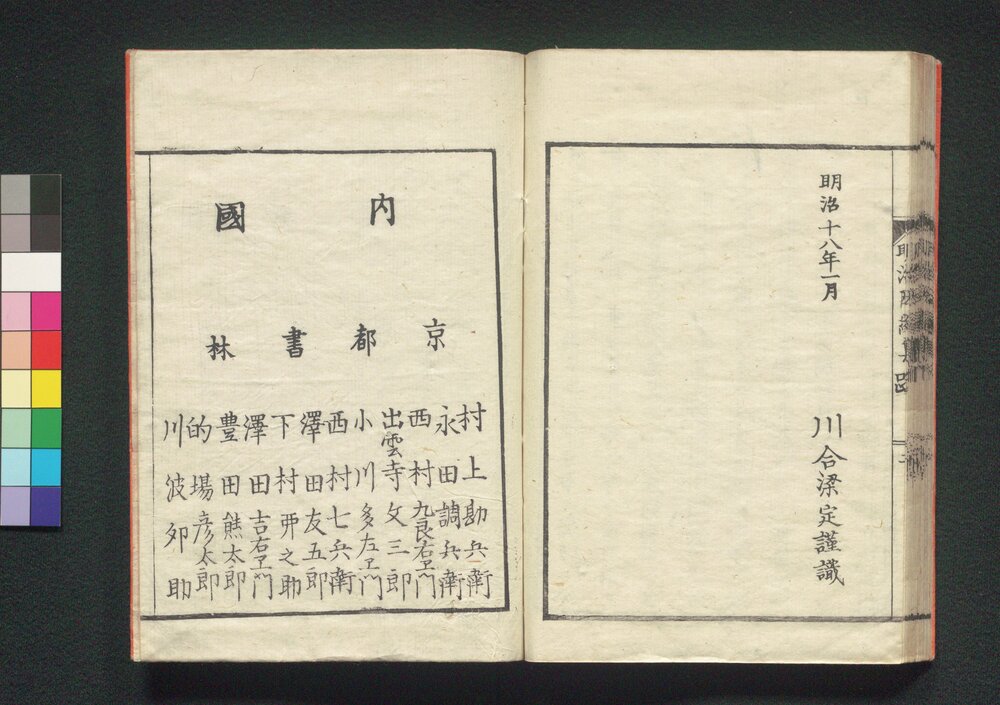 明治十八年一月
川合梁定謹識
内國
京都書林
村上勘兵衛
永田調兵衛
西村九良右ヱ門
出雲寺文三郎
小川多左ヱ門
西村七兵衛
澤田友五郎
下村弗之助
澤田吉右ヱ門
豊田熊太郎
的場彦太郎
川波卯助